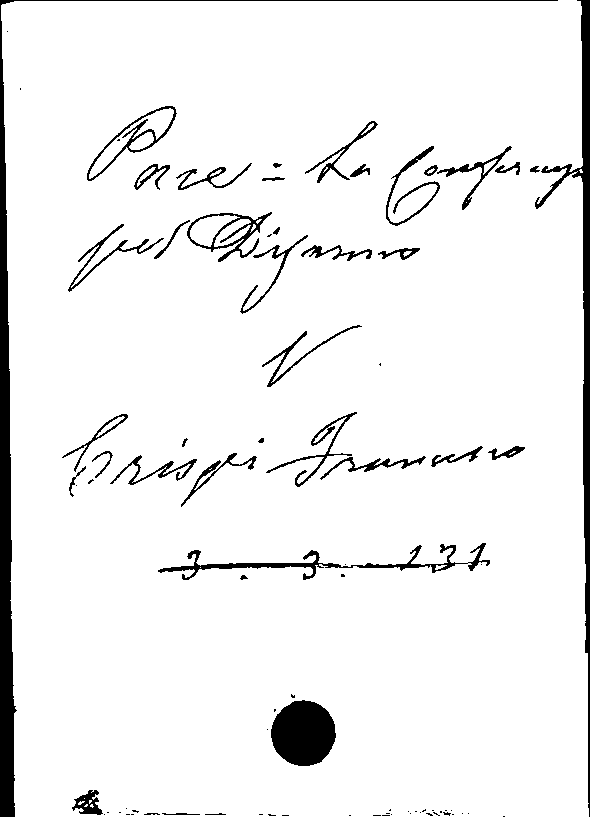 Pace = La Conferenza
pel Disarmo
V
Crispi Francesco
3 . 3. 131